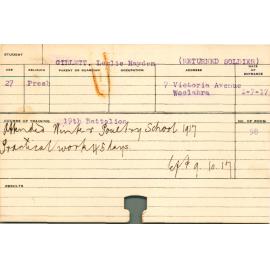 STUDENT
GIBLETT, Leslie Hayden (RETURNED SOLDIER)
AGE RELIGION PARENT OR GUARDIAN OCCUPATION ADDRESS
27 Presb 7 Victoria Avenue
Woolahra 2-7-17
COURSE OF TRAINING 19th Battalion NO. OF ROOM
Attended Winter Poultry School 1917 98
Practical work 43 days.
9.10.17
RESULTS